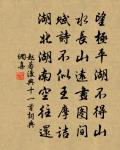 望極平湖不得山
水長山遠畫圖間
賦詩不似王摩詰
湖北湖南空往還
趙蕃 興十一首詞典
網喜